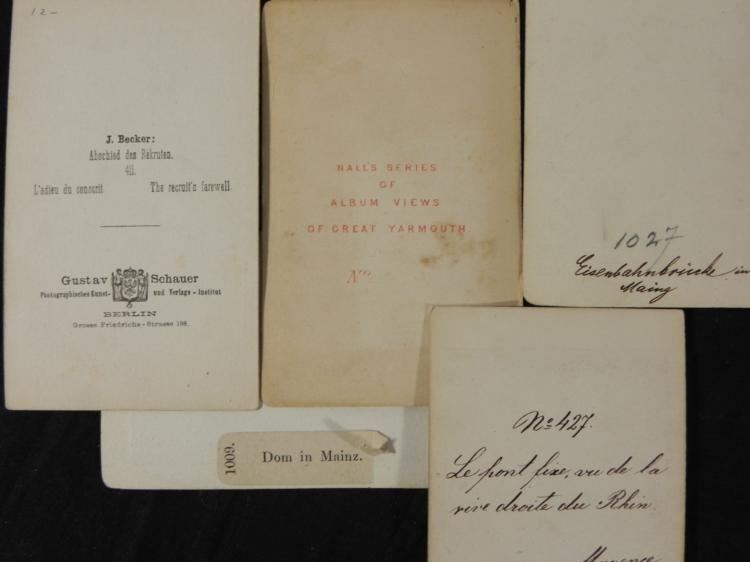 12-
J. Becker:
Abschied des Rekruten.
411.
L'adieu du conscrit The recruit's farewell.
Gustav Schauer
Photographisches Kunst- und Verlags-Institut
BERLIN
Grosse Friedrichs-Strasse 188.
NALL'S SERIES
OF
ALBUM VIEWS
OF GREAT YARMOUTH
No
1027
Eisenbahnbrücke in
Mainz
1009. Dom in Mainz.
No 427.
Le pont fixe, vu de la
rive droite du Rhin.
Mayence